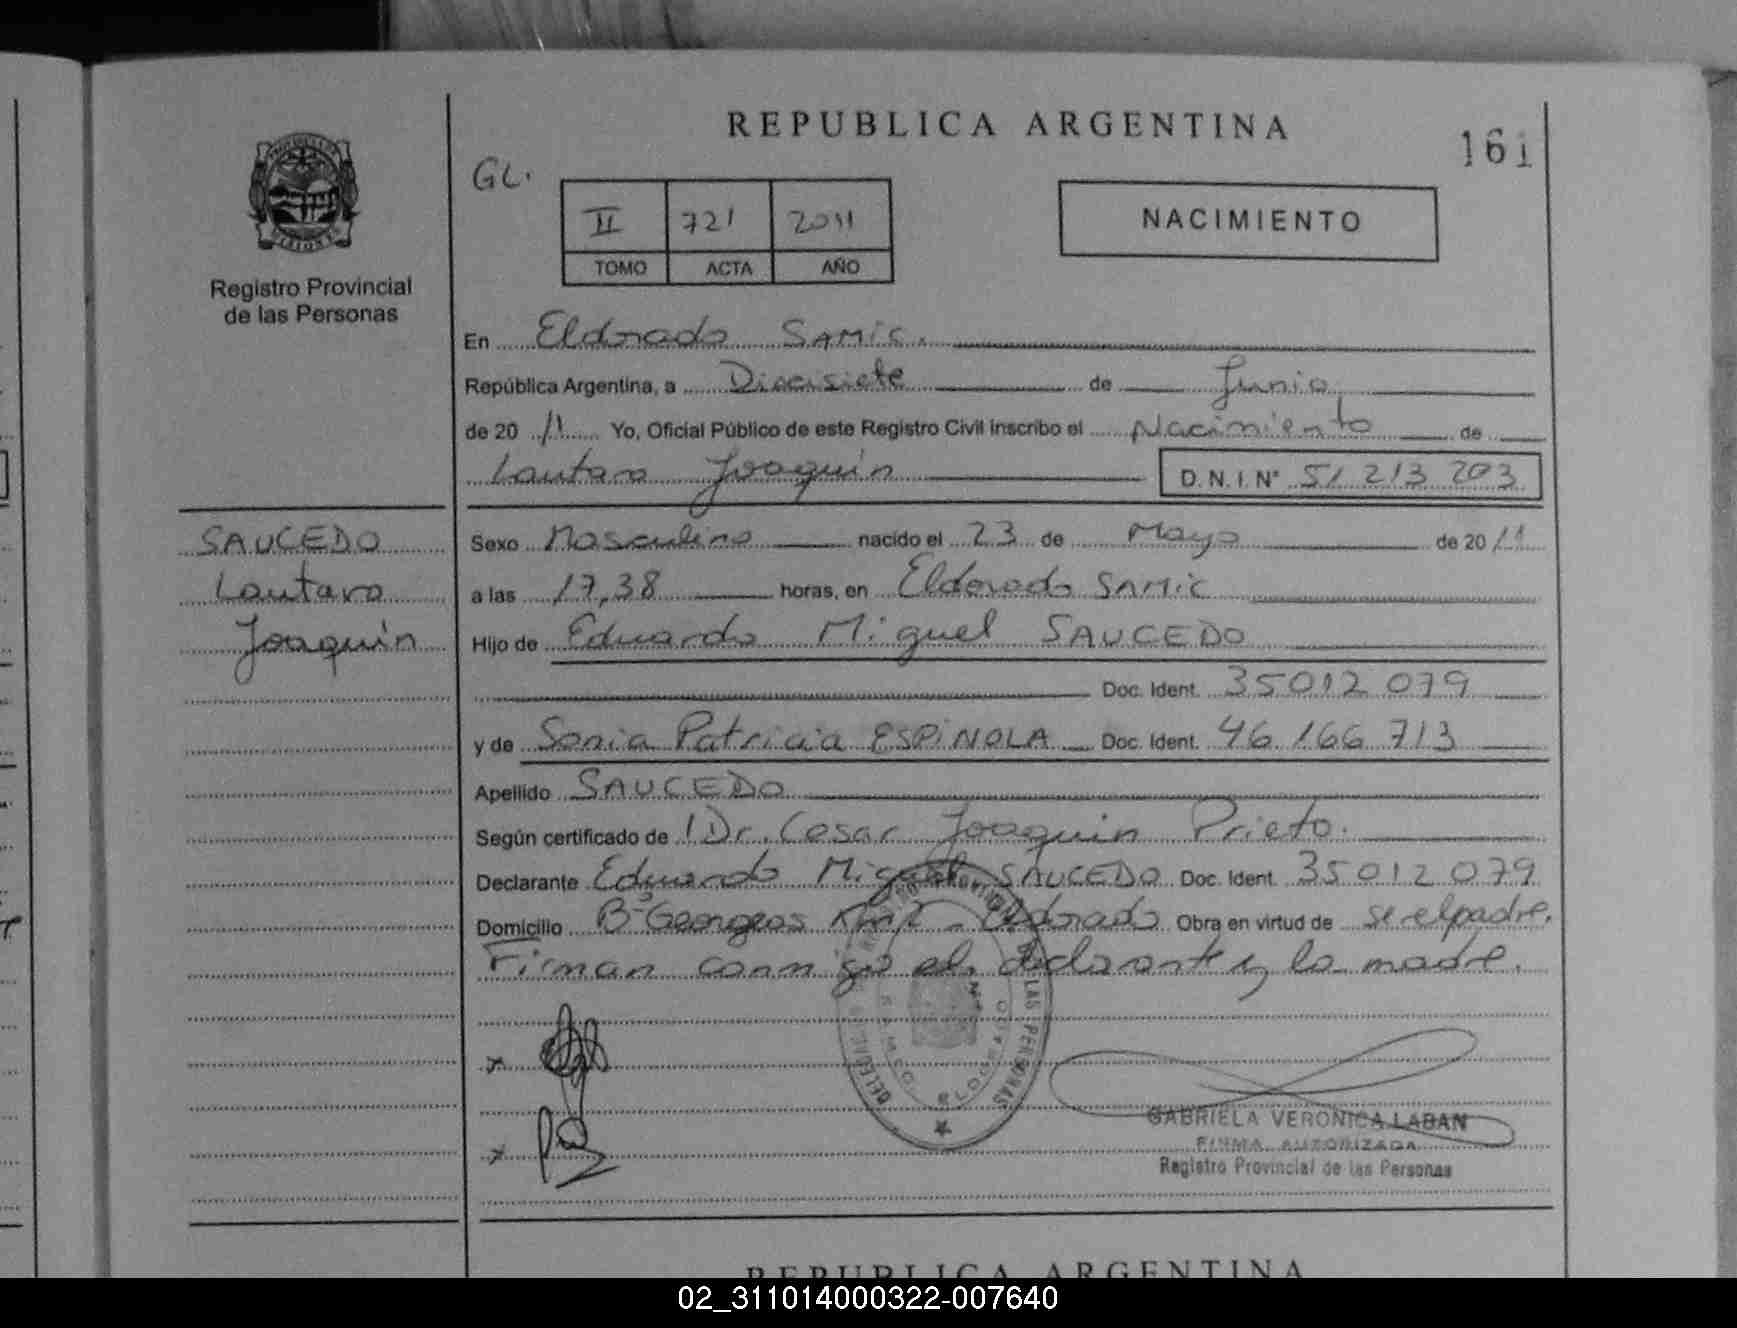 REPUBLICA ARGENTINA
161
GL.
II 721 2011
TOMO ACTA AÑO
NACIMIENTO
Registro Provincial
de las Personas
En Eldorado SAMIC.
República Argentina, a Diecisiete de Junio
de 20 11 Yo, Oficial Público de este Registro Civil inscribo el Nacimiento de
Lautaro Joaquín D.N.I. N° 51 213 203
SAUCEDO
Lautaro
Joaquín
Sexo Masculino nacido el 23 de Mayo de 20 11
a las 17,38 horas, en Eldorado SAMIC
Hijo de Eduardo Miguel SAUCEDO
Doc. Ident. 35012 079
y de Sonia Patricia ESPINOLA Doc. Ident. 46 166 713
Apellido SAUCEDO
Según certificado de Dr. Cesar Joaquin Prieto.
Declarante Eduardo Miguel SAUCEDO Doc. Ident. 35 012 079
Domicilio B° Eldorado Obra en virtud de se el padre.
Firman conmigo el declarante y la madre.
GABRIELA VERONICA LABAN
FIRMA AUTORIZADA
Registro Provincial de las Personas
REPUBLICA ARGENTINA
02_311014000322-007640